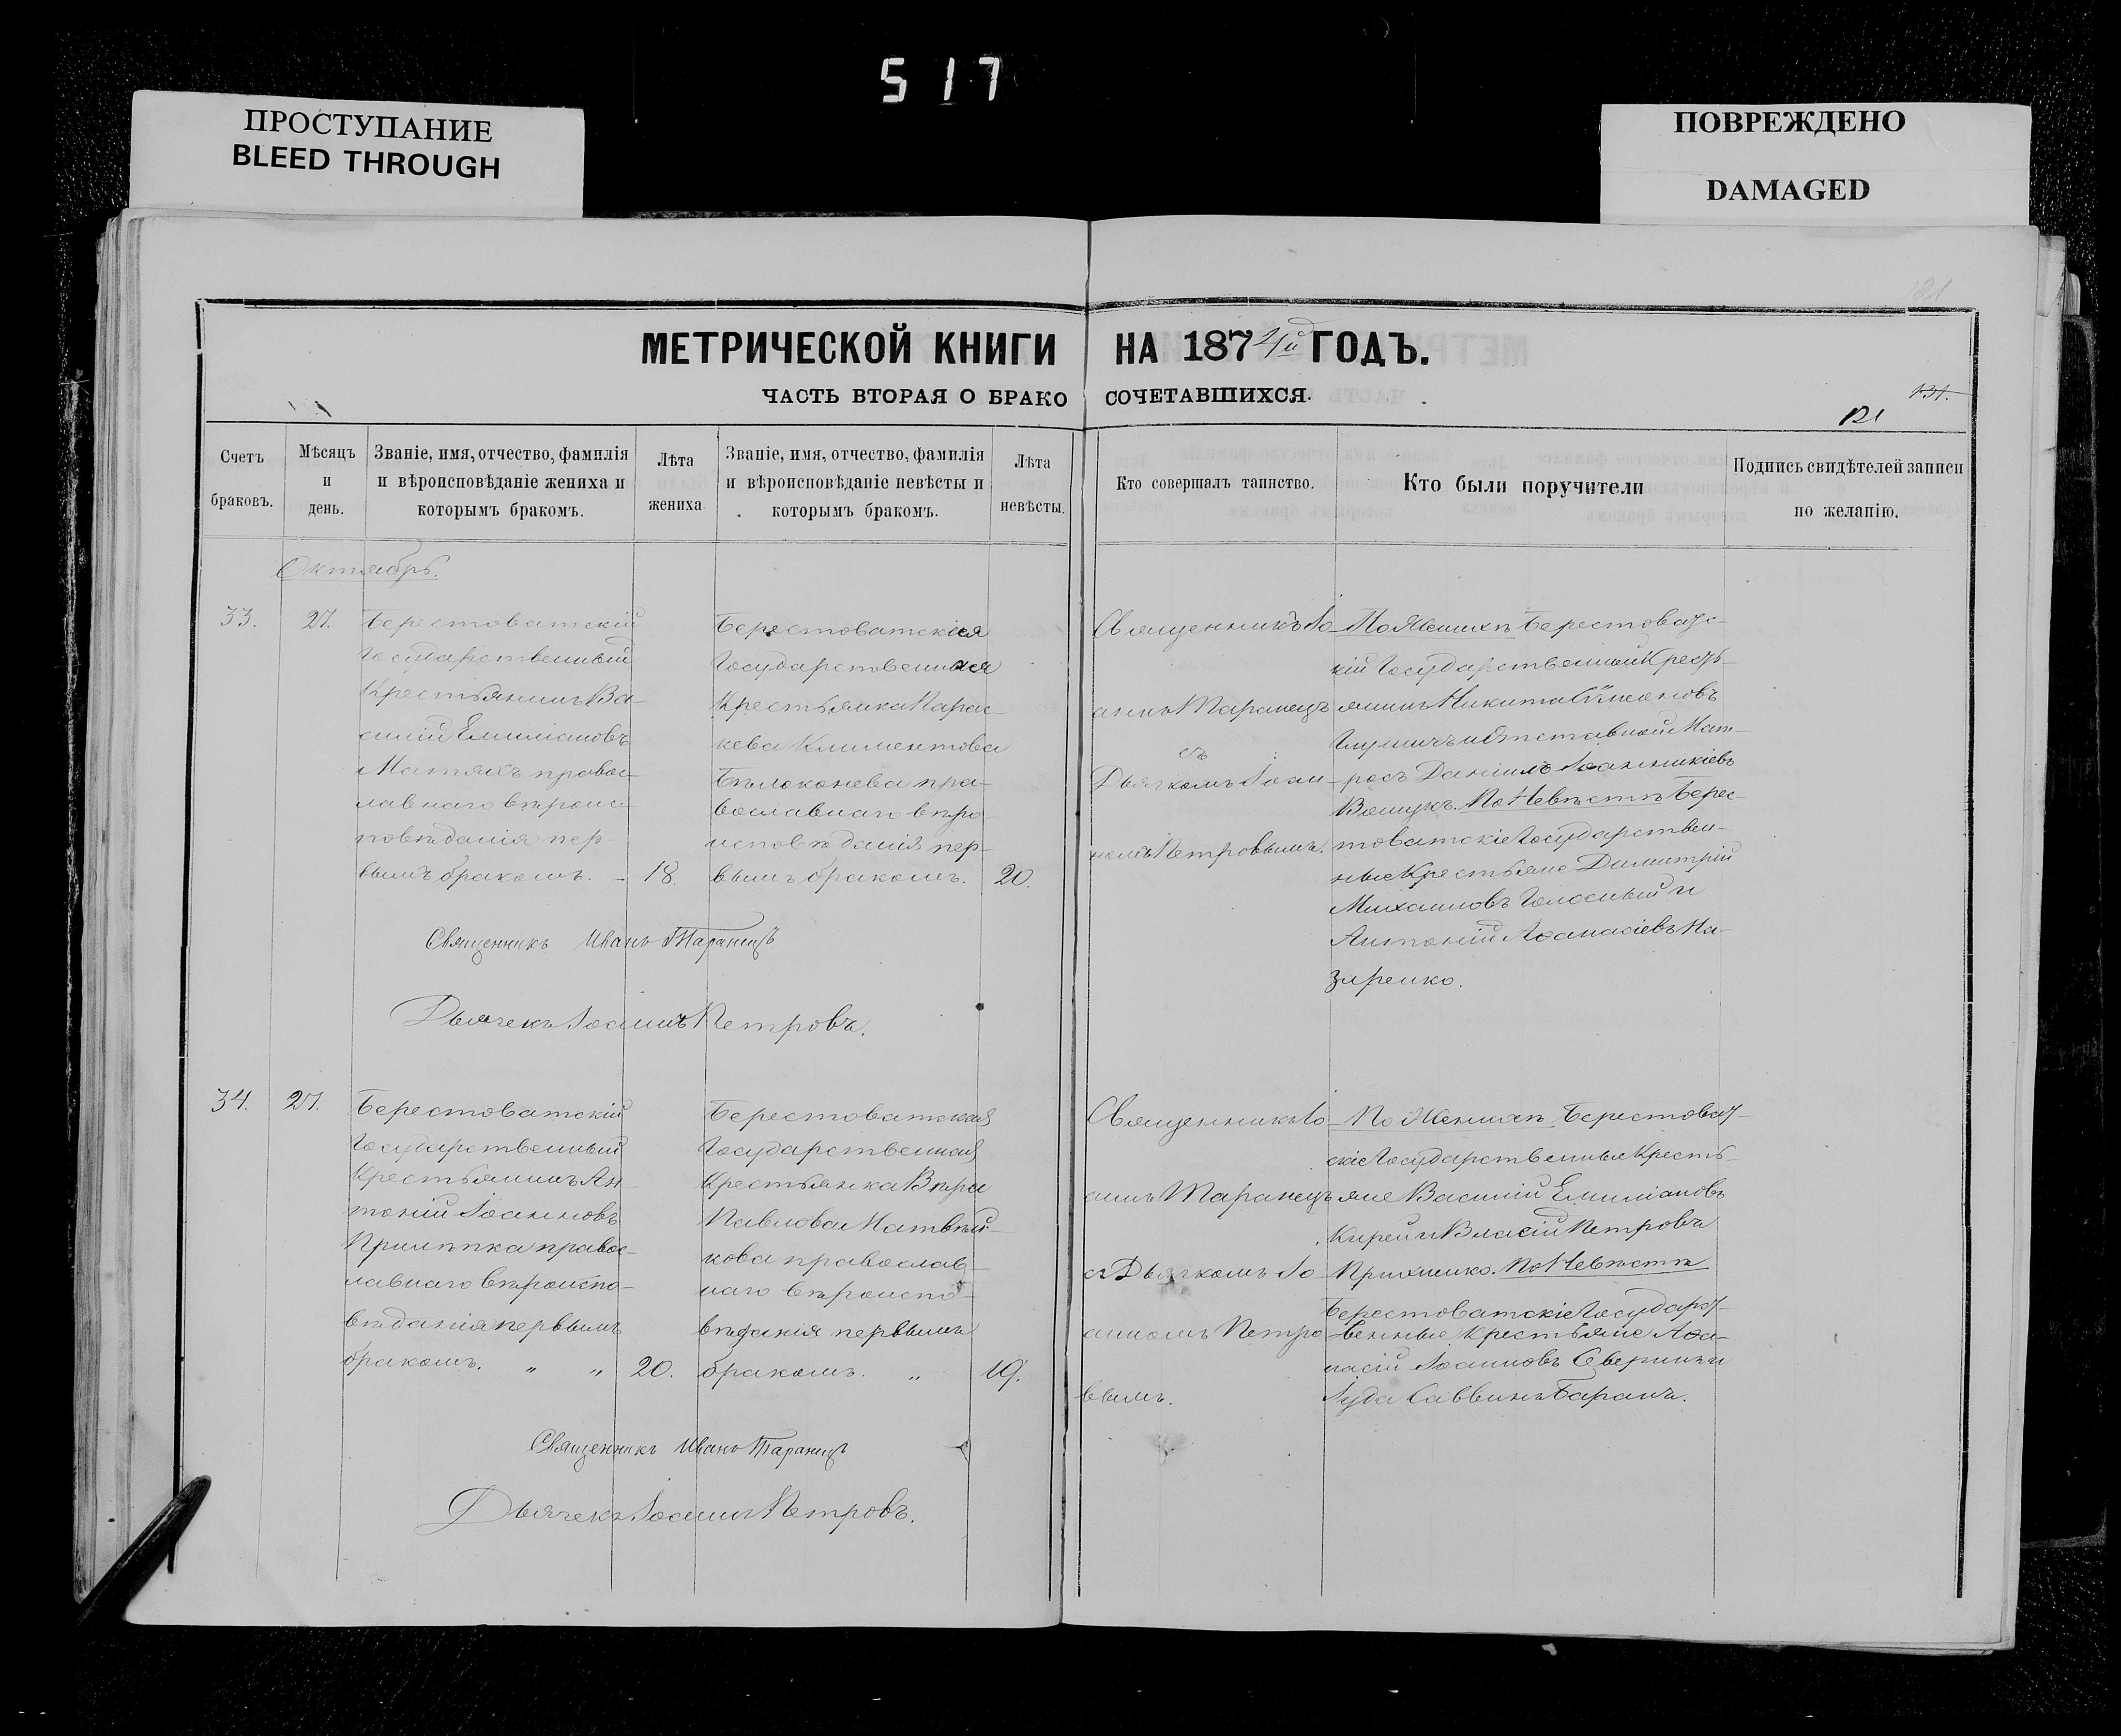 517
ПРОСТУПАНИЕ
BLEED THROUGH
ПОВРЕЖДЕНО
DAMAGED
МЕТРИЧЕСКОЙ КНИГИ НА 187 ГОДЪ.
ЧАСТЬ ВТОРАЯ О БРАКО СОЧЕТАВШИХСЯ.
131.
121
Счетъ браковъ.
Мѣсяцъ и день.
Званіе, имя, отчество, фамилія
и вѣроисповѣданіе жениха и
которымъ бракомъ.
Лѣта жениха
Званіе, имя, отчество, фамилія
и вѣроисповѣданіе невѣсты и
которымъ бракомъ.
Лѣта невѣсты.
Кто совершалъ таинство.
Кто были поручители
Подпись свидѣтелей записи
по желанію.
Октябрь.
33.
27.
Берестоватскій
Государственный
Крестьянинъ Ва-
силій Емиліановъ
Матяхъ правос-
лавнаго вѣроис-
повѣданія пер-
вымъ бракомъ.
18.
Берестоватская
Государственная
Крестьянка Парас-
кева Климентова
Бѣлоконева пра-
вославнаго вѣро-
исповѣданія пер-
вымъ бракомъ.
20.
Священникъ Іо-
аннъ Таранецъ
съ
Дьячкомъ Іоан-
номъ Петровымъ.
По Женихѣ Берестоватс-
кій Государственный Кресть-
янинъ Никита
и Отставной Мат-
росъ Даніилъ Іоанникіевъ
По Невѣстѣ Берес-
товатскіе Государствен-
ные Крестьяне Димитрій
Михаиловъ Голосный и
Антоній Аѳанасіевъ На-
заренко.
Священникъ Иванъ Таранецъ
Дьячекъ Іоаннъ Петровъ.
34.
27.
Берестоватскій
Государственный
Крестьянинъ Ан-
тоній Іоанновъ
Прилѣпка правос-
лавнаго вѣроиспо-
вѣданія первымъ
бракомъ. " "
20.
Берестоватская
Государственная
Крестьянка Вѣра
Павлова Матвѣй-
кова православ-
наго вѣроиспо-
вѣданія первымъ
бракомъ. "
19.
Священникъ Іо-
аннъ Таранецъ
съ Дьячкомъ Іо-
анномъ Петро-
вымъ.
По Женихѣ Берестоват-
скіе Государственные Кресть-
яне Василій Емиліановъ
Кирей и Власій Петровъ
Прихненко. По Невѣстѣ
Берестоватскіе Государст-
венные Крестьяне Аѳа-
насій Іоанновъ Сверникъ и
Іуда Саввинъ Баранъ.
Священникъ Иванъ Таранецъ
Дьячекъ Іоаннъ Петровъ.